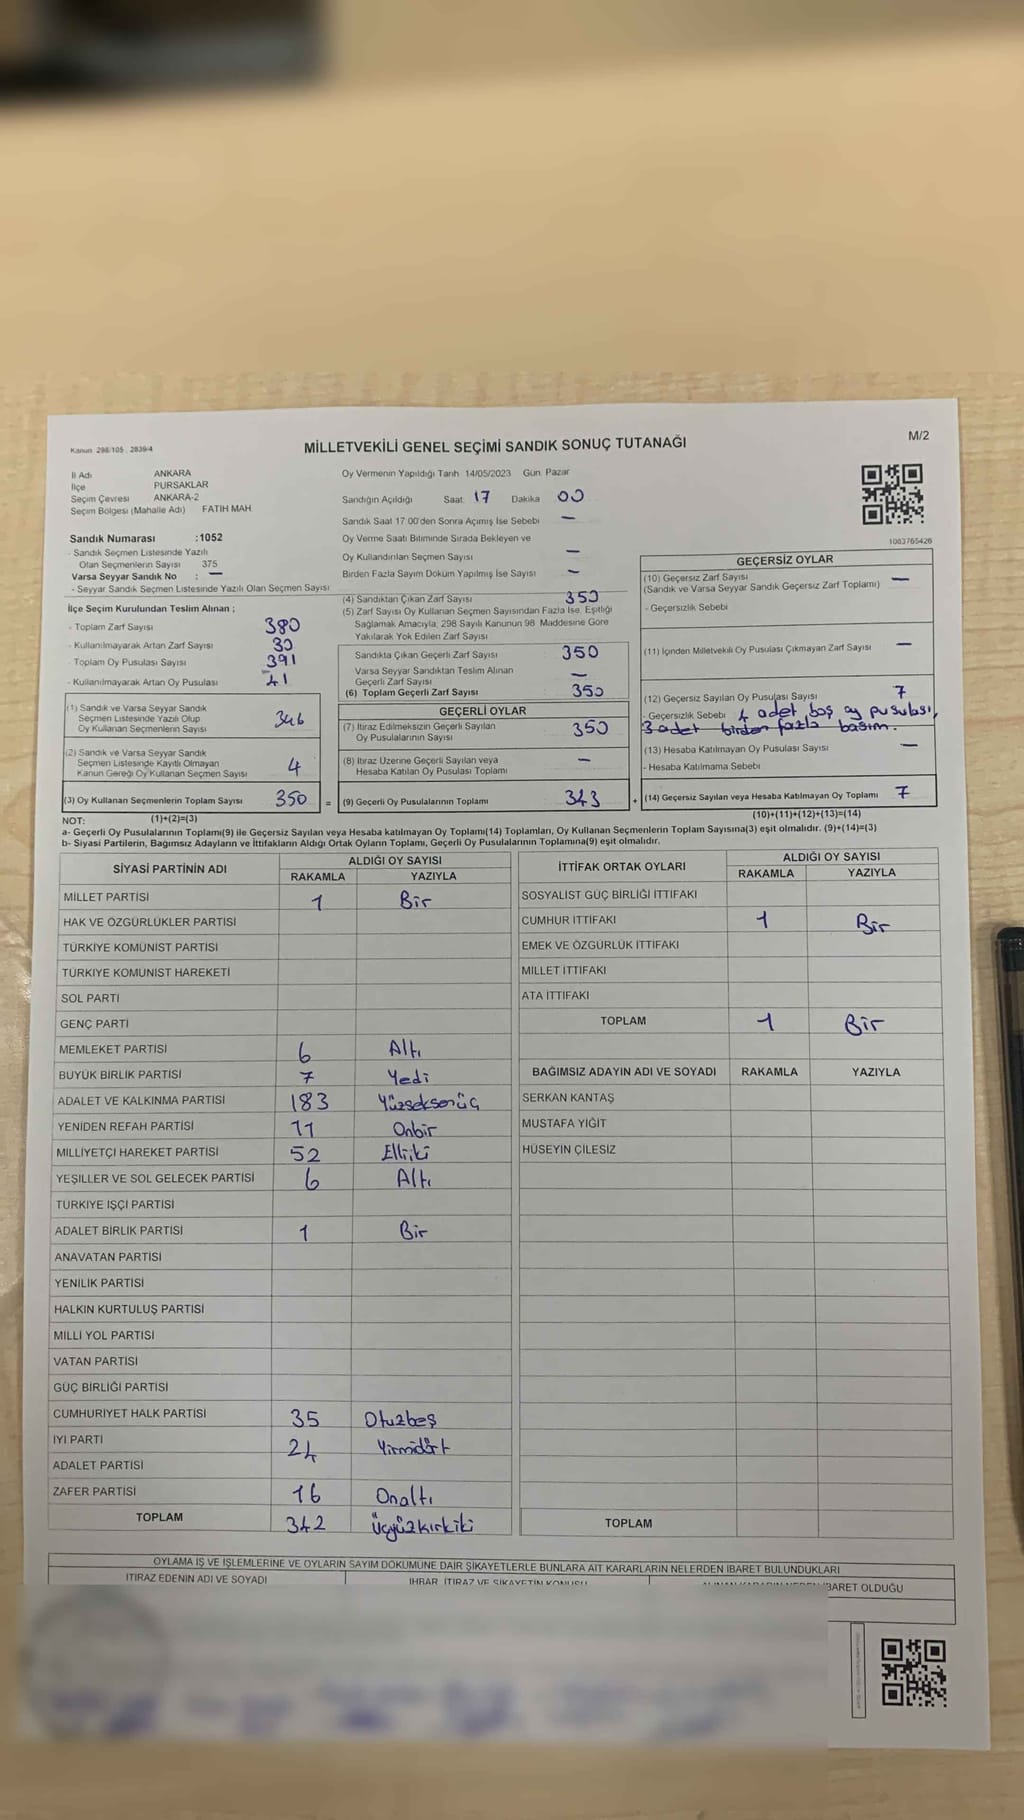 Kanun 298/105, 2839/4
MİLLETVEKİLİ GENEL SEÇİMİ SANDIK SONUÇ TUTANAĞI
M/2
İl Adı ANKARA
İlçe PURSAKLAR
Seçim Çevresi ANKARA-2
Seçim Bölgesi (Mahalle Adı) FATİH MAH
Sandık Numarası :1052
- Sandık Seçmen Listesinde Yazılı
Olan Seçmenlerin Sayısı 375
Varsa Seyyar Sandık No : —
- Seyyar Sandık Seçmen Listesinde Yazılı Olan Seçmen Sayısı
İlçe Seçim Kurulundan Teslim Alınan ;
- Toplam Zarf Sayısı 380
- Kullanılmayarak Artan Zarf Sayısı 30
- Toplam Oy Pusulası Sayısı 391
- Kullanılmayarak Artan Oy Pusulası 41
(1) Sandık ve Varsa Seyyar Sandık
Seçmen Listesinde Yazılı Olup
Oy Kullanan Seçmenlerin Sayısı 346
(2) Sandık ve Varsa Seyyar Sandık
Seçmen Listesinde Kayıtlı Olmayan
Kanun Gereği Oy Kullanan Seçmen Sayısı 4
(3) Oy Kullanan Seçmenlerin Toplam Sayısı 350 =
Oy Vermenin Yapıldığı Tarih 14/05/2023 Gün Pazar
Sandığın Açıldığı Saat 17 Dakika 00
Sandık Saat 17 00'den Sonra Açımış İse Sebebi —
Oy Verme Saati Bitiminde Sırada Bekleyen ve
Oy Kullandırılan Seçmen Sayısı —
Birden Fazla Sayım Döküm Yapılmış İse Sayısı —
(4) Sandıktan Çıkan Zarf Sayısı 350
(5) Zarf Sayısı Oy Kullanan Seçmen Sayısından Fazla İse, Eşitliği
Sağlamak Amacıyla, 298 Sayılı Kanunun 98 Maddesine Göre
Yakılarak Yok Edilen Zarf Sayısı
Sandıkta Çıkan Geçerli Zarf Sayısı 350
Varsa Seyyar Sandıktan Teslim Alınan
Geçerli Zarf Sayısı —
(6) Toplam Geçerli Zarf Sayısı 350
GEÇERLİ OYLAR
(7) İtiraz Edilmeksizin Geçerli Sayılan
Oy Pusulalarının Sayısı 350
(8) İtiraz Üzerine Geçerli Sayılan veya
Hesaba Katılan Oy Pusulası Toplamı —
(9) Geçerli Oy Pusulalarının Toplamı 343 +
1083765426
GEÇERSİZ OYLAR
(10) Geçersiz Zarf Sayısı
(Sandık ve Varsa Seyyar Sandık Geçersiz Zarf Toplamı) —
- Geçersizlik Sebebi
(11) İçinden Milletvekili Oy Pusulası Çıkmayan Zarf Sayısı —
(12) Geçersiz Sayılan Oy Pusulası Sayısı 7
- Geçersizlik Sebebi 4 adet boş oy pusulası,
3 adet birden fazla basım.
(13) Hesaba Katılmayan Oy Pusulası Sayısı —
- Hesaba Katılmama Sebebi
(14) Geçersiz Sayılan veya Hesaba Katılmayan Oy Toplamı 7
NOT: (1)+(2)=(3)
(10)+(11)+(12)+(13)=(14)
a- Geçerli Oy Pusulalarının Toplamı(9) ile Geçersiz Sayılan veya Hesaba katılmayan Oy Toplamı(14) Toplamları, Oy Kullanan Seçmenlerin Toplam Sayısına(3) eşit olmalıdır. (9)+(14)=(3)
b- Siyasi Partilerin, Bağımsız Adayların ve İttifakların Aldığı Ortak Oyların Toplamı, Geçerli Oy Pusulalarının Toplamına(9) eşit olmalıdır.
SİYASİ PARTİNİN ADI ALDIĞI OY SAYISI
RAKAMLA YAZIYLA
MİLLET PARTİSİ 1 Bir
HAK VE ÖZGÜRLÜKLER PARTİSİ
TÜRKİYE KOMÜNİST PARTİSİ
TÜRKİYE KOMÜNİST HAREKETİ
SOL PARTİ
GENÇ PARTİ
MEMLEKET PARTİSİ 6 Altı
BÜYÜK BİRLİK PARTİSİ 7 Yedi
ADALET VE KALKINMA PARTİSİ 183 Yüzseksenüç
YENİDEN REFAH PARTİSİ 11 Onbir
MİLLİYETÇİ HAREKET PARTİSİ 52 Elliiki
YEŞİLLER VE SOL GELECEK PARTİSİ 6 Altı
TÜRKİYE İŞÇİ PARTİSİ
ADALET BİRLİK PARTİSİ 1 Bir
ANAVATAN PARTİSİ
YENİLİK PARTİSİ
HALKIN KURTULUŞ PARTİSİ
MİLLİ YOL PARTİSİ
VATAN PARTİSİ
GÜÇ BİRLİĞİ PARTİSİ
CUMHURİYET HALK PARTİSİ 35 Otuzbeş
İYİ PARTİ 24 Yirmidört
ADALET PARTİSİ
ZAFER PARTİSİ 16 Onaltı
TOPLAM 342 Üçyüzkırkiki
İTTİFAK ORTAK OYLARI ALDIĞI OY SAYISI
RAKAMLA YAZIYLA
SOSYALİST GÜÇ BİRLİĞİ İTTİFAKI
CUMHUR İTTİFAKI 1 Bir
EMEK VE ÖZGÜRLÜK İTTİFAKI
MİLLET İTTİFAKI
ATA İTTİFAKI
TOPLAM 1 Bir
BAĞIMSIZ ADAYIN ADI VE SOYADI RAKAMLA YAZIYLA
SERKAN KANTAŞ
MUSTAFA YİĞİT
HÜSEYİN ÇİLESİZ
TOPLAM
OYLAMA İŞ VE İŞLEMLERİNE VE OYLARIN SAYIM DÖKÜMÜNE DAİR ŞİKAYETLERLE BUNLARA AİT KARARLARIN NELERDEN İBARET BULUNDUKLARI
İTİRAZ EDENİN ADI VE SOYADI İHBAR, İTİRAZ VE ŞİKAYETİN KONUSU İBARET OLDUĞU